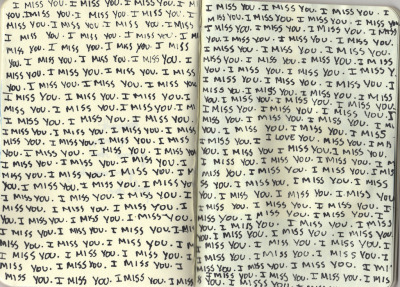 I MISS YOU. I MISS YOU. I MISS YOU. I M
YOU. I MISS YOU. I MISS YOU. I MISS YOU. I
MISS YOU. I MISS YOU. I MISS YOU. I MISS
I MISS YOU. I MISS YOU. I MISS YOU. I
MISS YOU. I MISS YOU. I MISS YOU. I MISS
YOU. I MISS YOU. I MISS YOU. I MISS YOU. I
MISS YOU. I MISS YOU. I MISS YOU. I MISS
YOU. I MISS YOU. I MISS YOU. I MISS YOU.
I MISS YOU. I MISS YOU. I MISS YOU. I MISS
MISS YOU. I MISS YOU. I MISS YOU. I M
I MISS YOU. I MISS YOU. I MISS YOU. I MISS
I MISS YOU. I MISS YOU. I MISS YOU. I MISS
YOU. I MISS YOU. I MISS YOU. I MISS YOU.
I MISS YOU. I MISS YOU. I MISS YOU. I
MISS YOU. I MISS YOU. I MISS YOU. I MISS
YOU. I MISS YOU. I MISS YOU. I MISS YOU
I MISS YOU. I MISS YOU. I MISS YOU.
MISS YOU. I MISS YOU. I MISS YOU. I
YOU. I MISS YOU. I MISS YOU. I MISS YOU.
MISS YOU. I MISS YOU. I MISS YOU. I MISS
MISS YOU. I MISS YOU. I MISS YOU. I M
I MISS YOU. I MISS YOU. I MISS YOU. I
MISS YOU. I MISS YOU. I MISS YOU.
MISS YOU. I MISS YOU. I MISS YOU. I MISS
I MISS YOU. I MISS YOU. I MISS YOU. I
MISS YOU. I MISS YOU. I MISS YOU. I MISS YOU
YOU. I MISS YOU. I MISS YOU. I MISS
YOU. I MISS YOU. I MISS YOU. I MISS YOU.
I MISS YOU. I MISS YOU. I MISS YOU. I
MISS YOU. I MISS YOU. I MISS YOU. I MISS
YOU. I MISS YOU. I MISS YOU. I MISS YOU.
I MISS YOU. I MISS YOU. I MISS YOU. I
YOU. I MISS YOU. I MISS YOU. I MISS
I MISS YOU. I MISS YOU. I MISS YOU.
YOU. I MISS YOU. I MISS YOU. I MISS
YOU. I MISS YOU. I LOVE YOU. I MISS
YOU. I MISS YOU. I MISS YOU. I MISS YOU.
I MISS YOU. I MISS YOU. I MISS YOU. I
MISS YOU. I MISS YOU. I MISS YOU. I MISS
YOU. I MISS YOU. I MISS YOU. I MISS YOU.
I MISS YOU. I MISS YOU. I MISS YOU
YOU. I MISS YOU. I MISS YOU. I MISS
MISS YOU. I MISS YOU. I MISS YOU. I
YOU. I MISS YOU. I MISS YOU. I MISS YOU.
I MISS YOU. I MISS YOU. I MISS YOU.
I MISS YOU. I MISS YOU. I MISS YOU. I
MISS YOU. I MISS YOU. I MISS YOU. I MISS